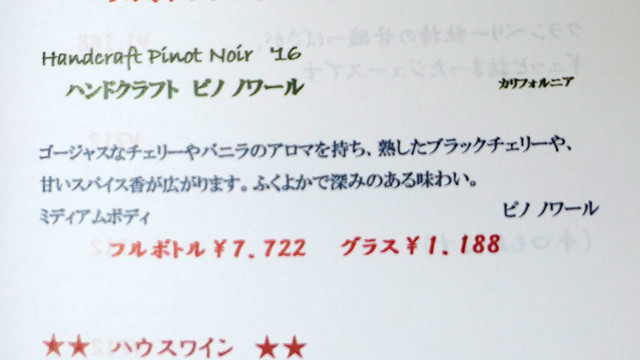 Handcraft Pinot Noir '16
ハンドクラフト ピノ ノワール
カリフォルニア
ゴージャスなチェリーやバニラのアロマを持ち、熟したブラックチェリーや、
甘いスパイス香が広がります。ふくよかで深みのある味わい。
ミディアムボディ
ピノ ノワール
フルボトル¥7.722 グラス¥1.188
★★ ハウスワイン ★★